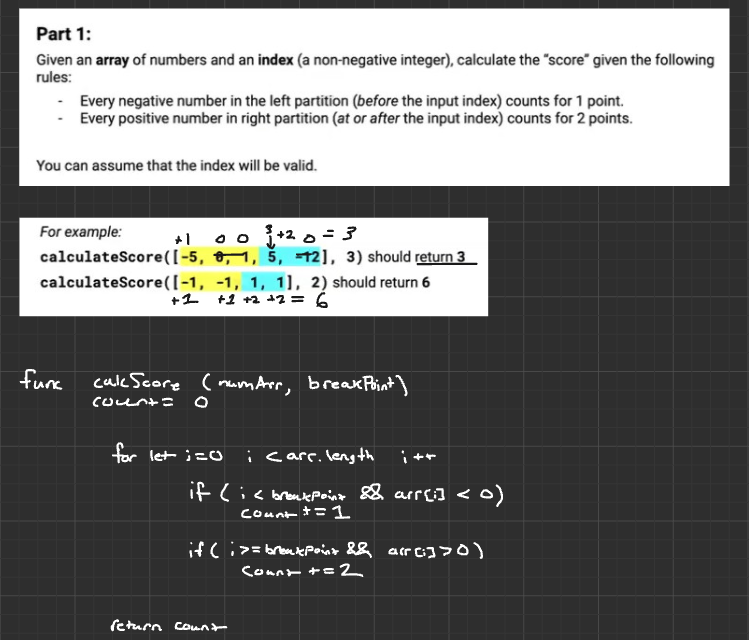 Part 1:
Given an array of numbers and an index (a non-negative integer), calculate the "score" given the following
rules:
- Every negative number in the left partition (before the input index) counts for 1 point.
- Every positive number in right partition (at or after the input index) counts for 2 points.
You can assume that the index will be valid.
For example:
+1 0 0 3 +2 0 = 3
calculateScore([-5, 0, 1, 5, -12], 3) should return 3
calculateScore([-1, -1, 1, 1], 2) should return 6
+1 +1 +2 +2 = 6
func calcScore (numArr, breakPoint)
count = 0
for let i=0 i < arr.length i++
if ( i < breakpoint && arr[i] < 0)
count += 1
if ( i >= breakpoint && arr[i] > 0)
count += 2
return count